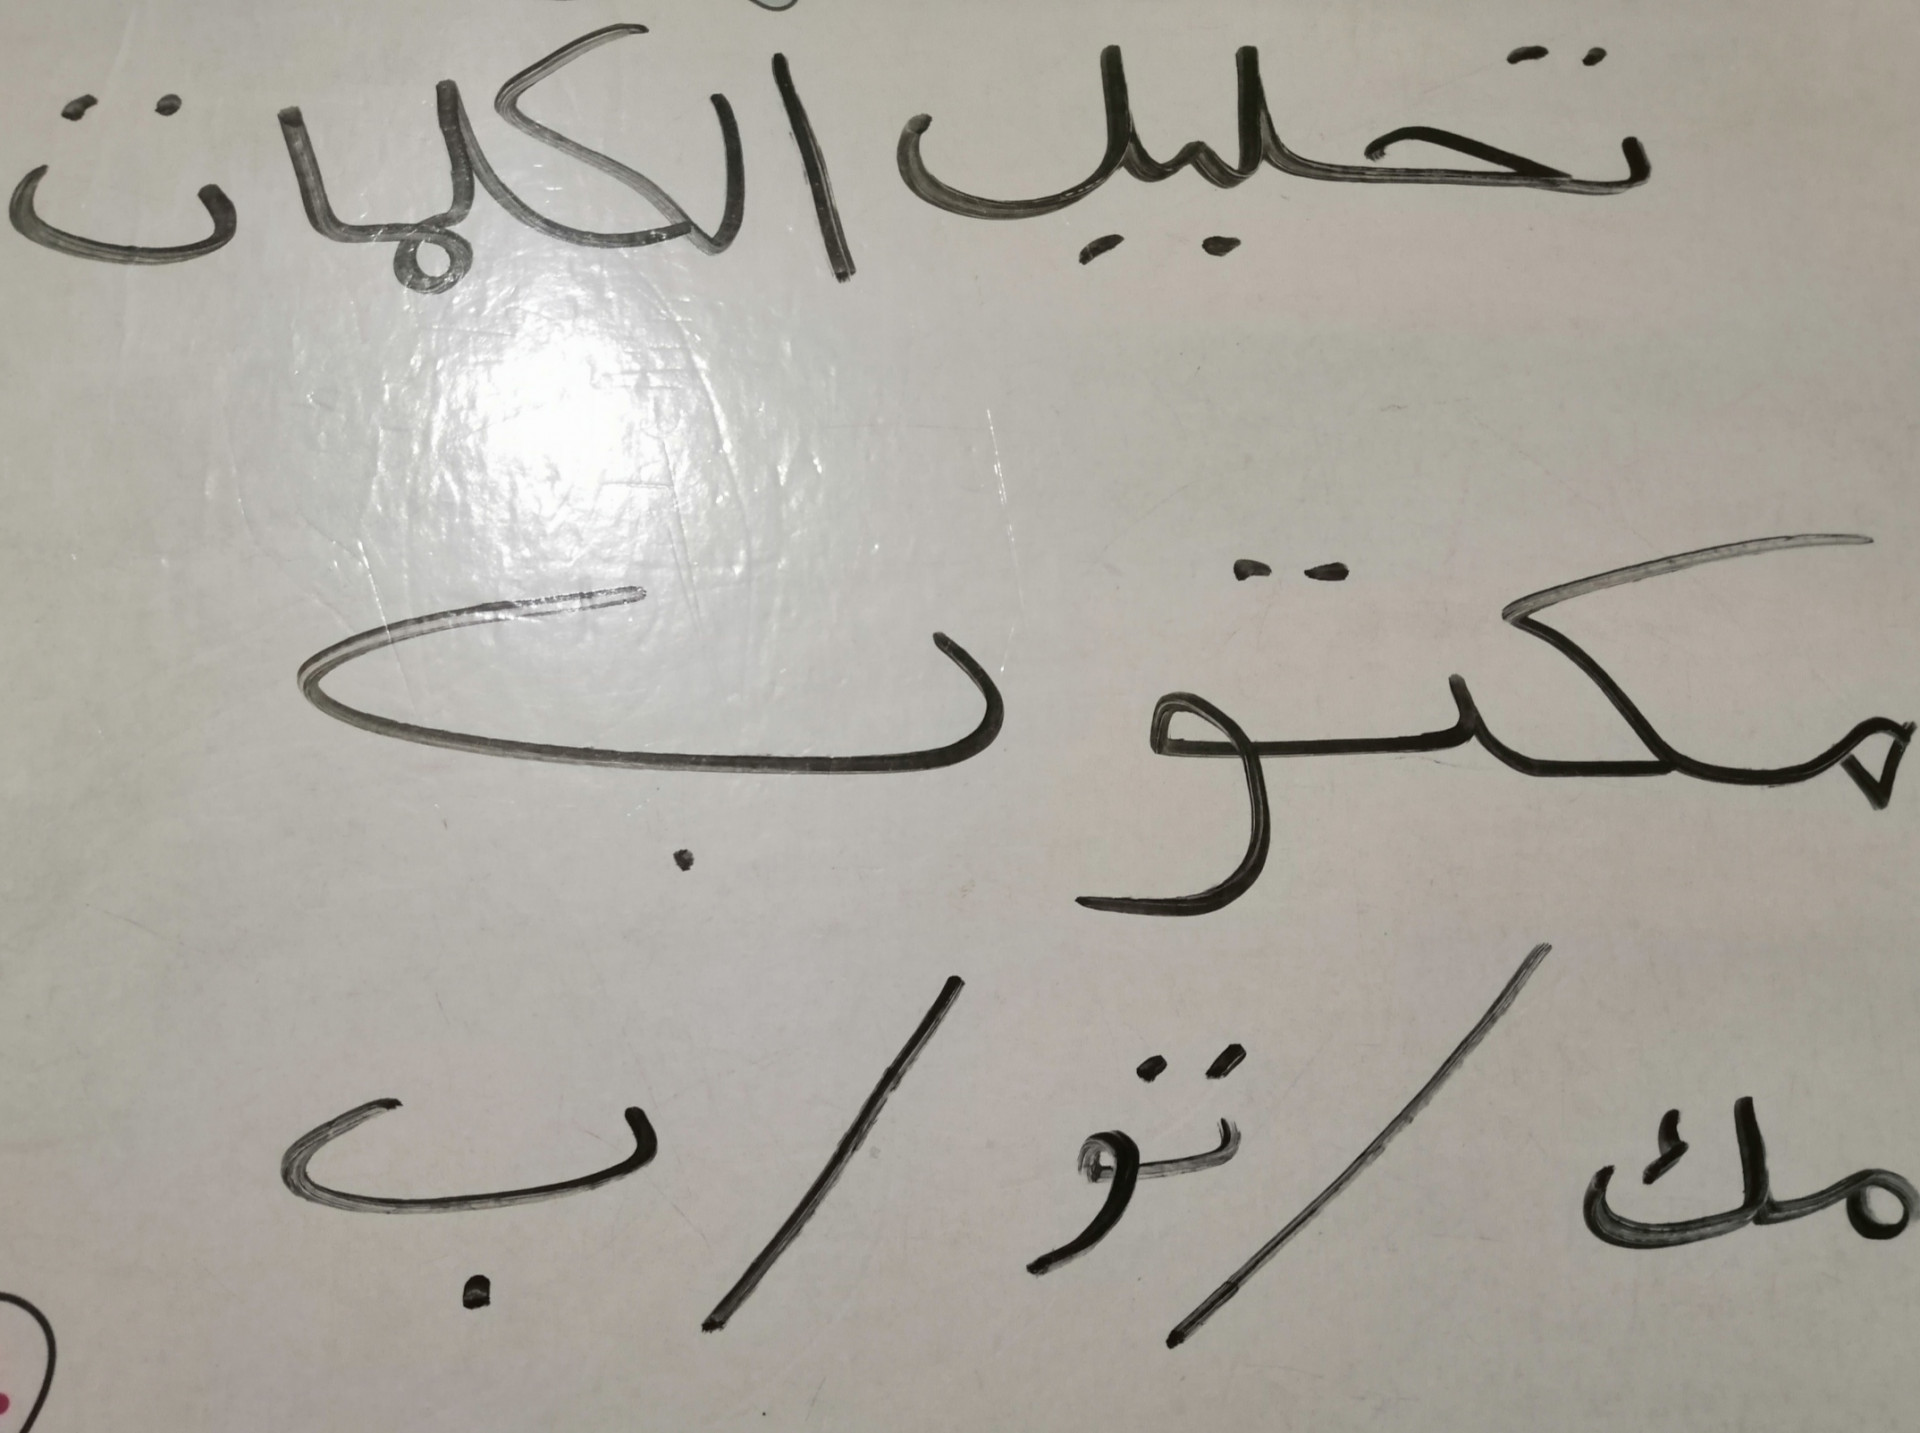 تحليل الكلمات
مكتوب
مك / تو / ب